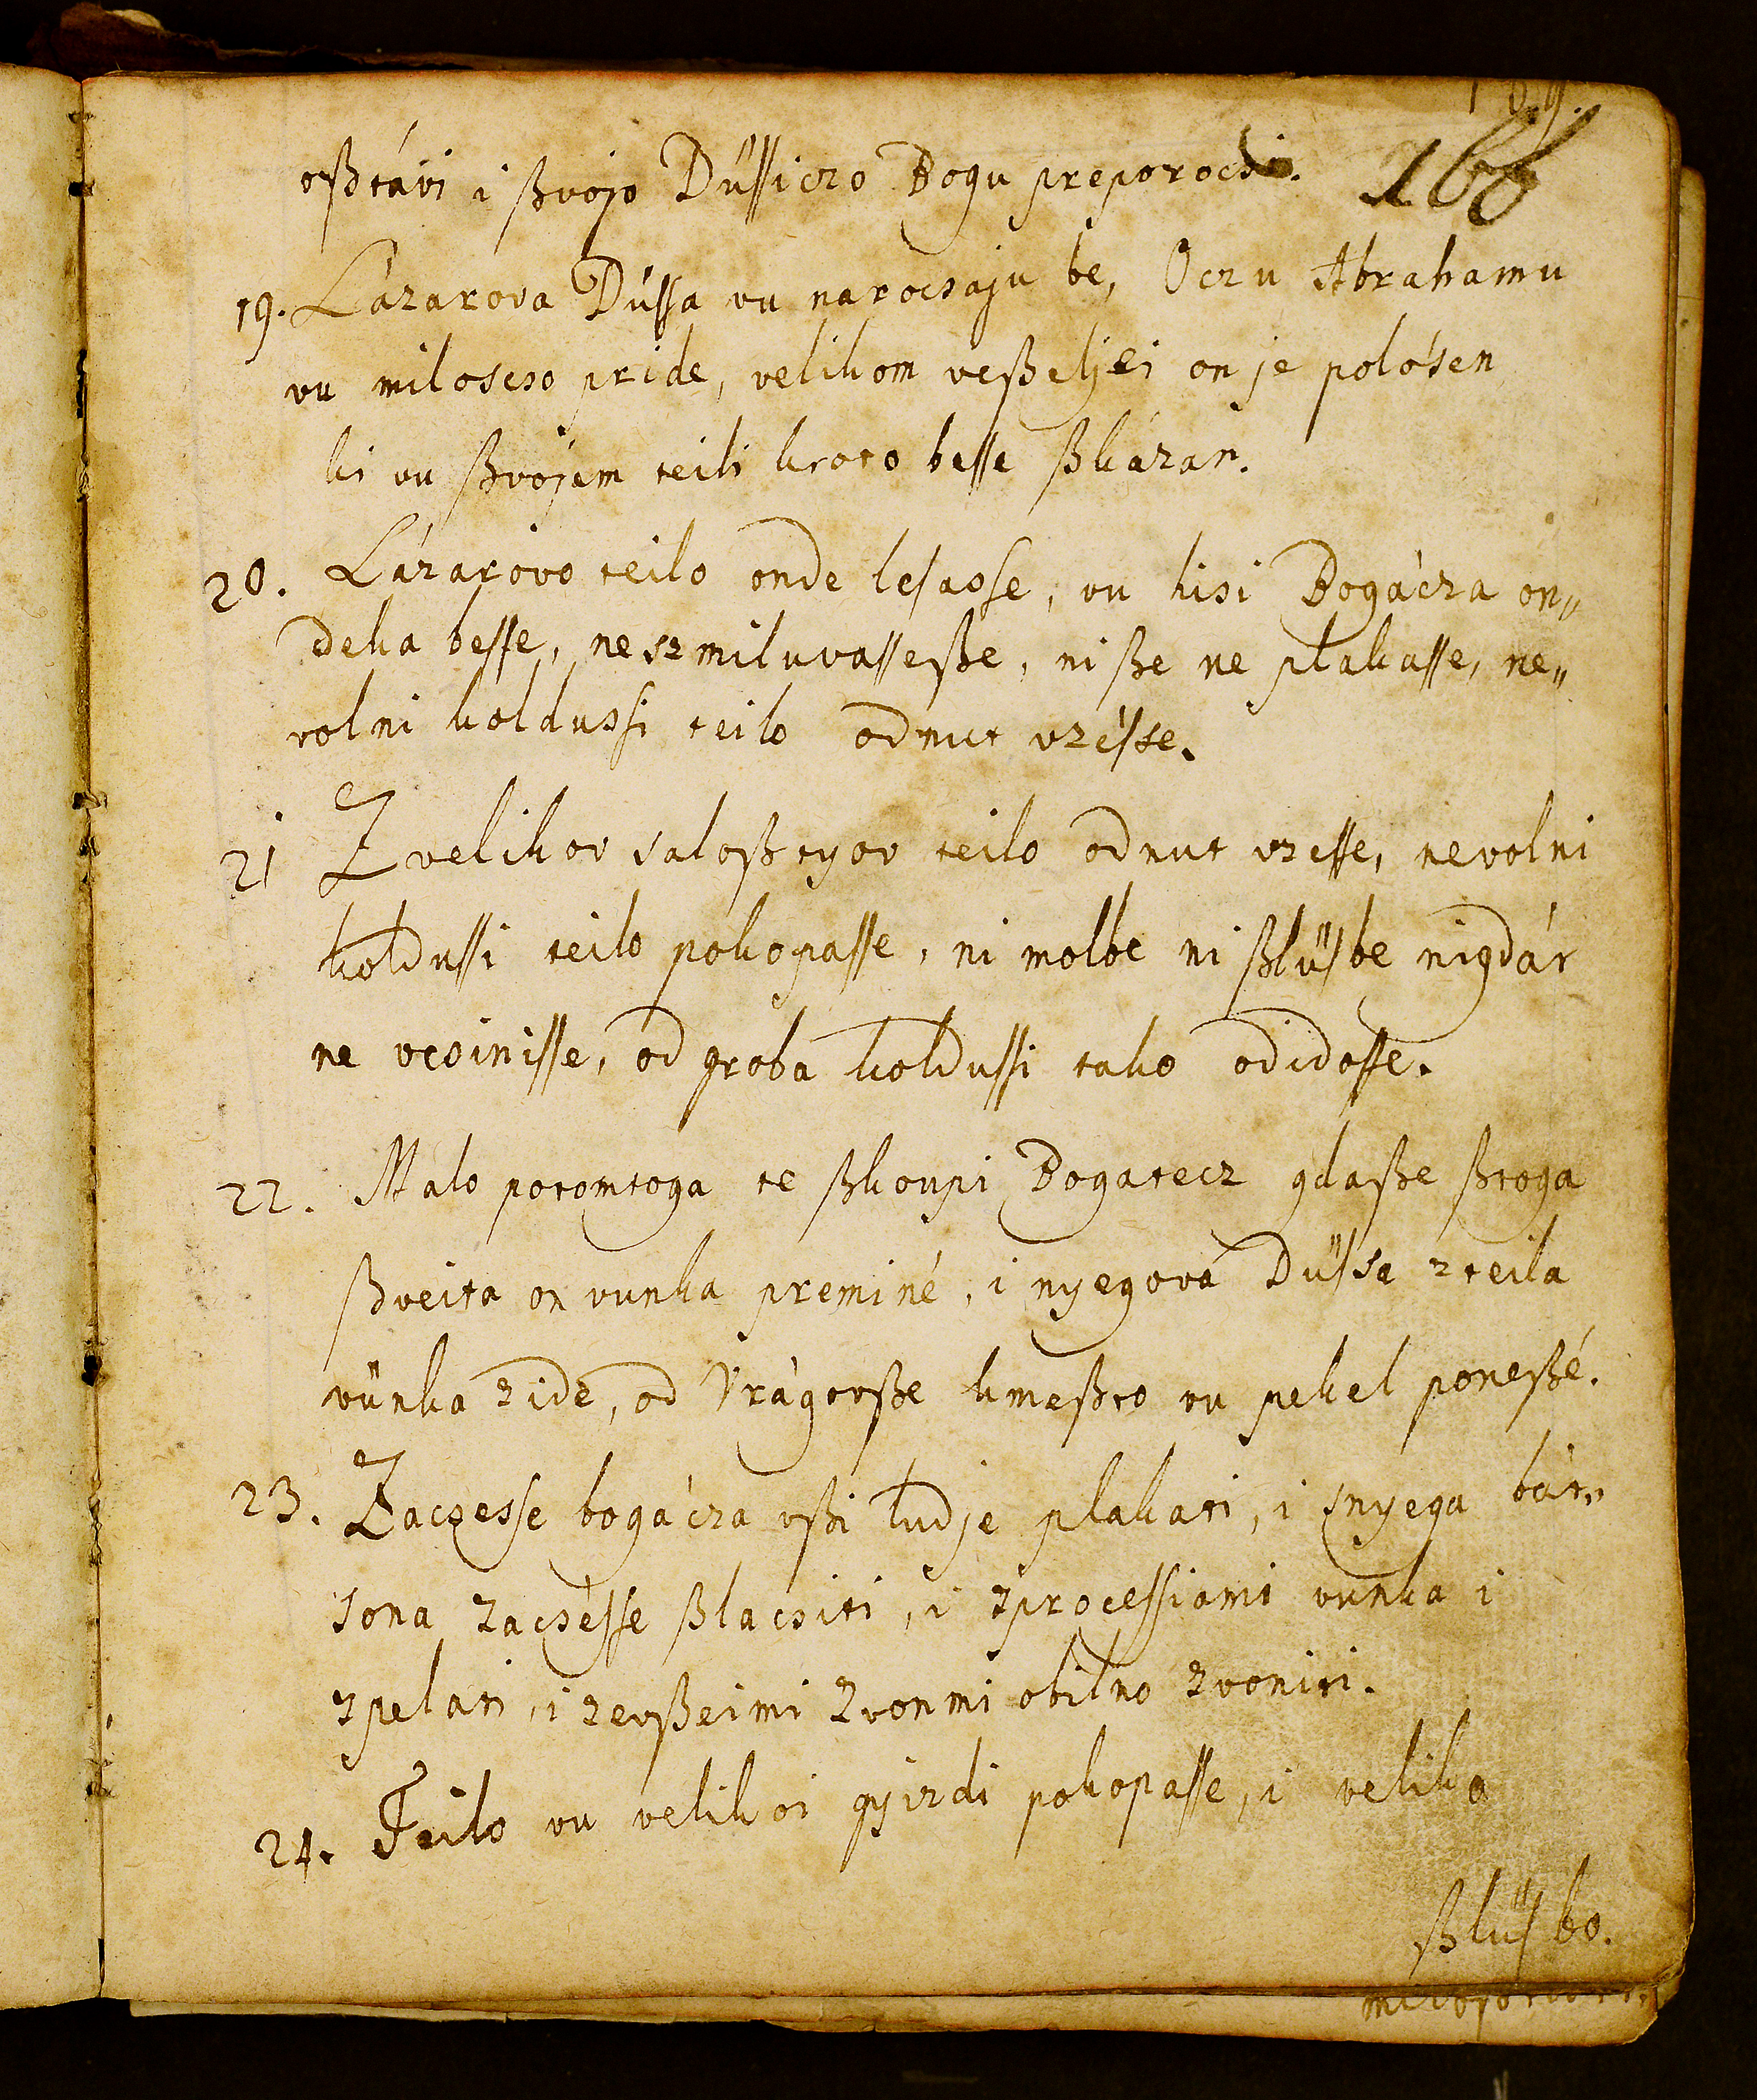 166
oßtávi i ßvojo Düssiczo Bogu preporocsi.
19. Lázarova Düssa vu narocsaju be, Oczu Abrahamu
vu miloscso pride, velikom veßeljei on je polósen
ki vu ßvojem teili kroto besse ßkázan.
20. Lázarovo teilo onde lesasse, vu hisi Bogácza on„
deka besse, neszmiluvasseße, niße ne plakasse, ne„
volni koldussi teilo odnut vzésse.
21 Z velikov saloßtyov teilo odnut vzesse, nevolni
koldussi teilo pokopasse, ni molbe ni ßlüsbe nigdár
ne vcsinisse, od groba koldussi tako odidosse.
22. Malo potomtoga te ßkoupi Bogatecz gdaße ßtoga
ßveita on vunka preminé, i nyegova Düssa z teila
vünka zide, od Vrágovße kmeßto vu pekel poneßé.
23. Zacsesse bogácza vßi ludje plakati, i snyega bár„
sona zacsésse ßlacsiti, i zprocessiami vunka i
zpelati, i zevßeimi zvonmi obilno zvoniti.
24. Teilo vu velikoi gyizdi pokopasse, i veliko
ßlüsbo.